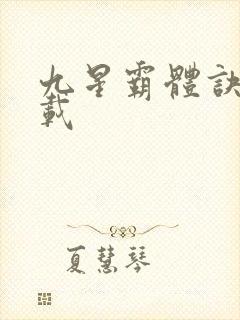 九星霸體訣
載
夏慧琴